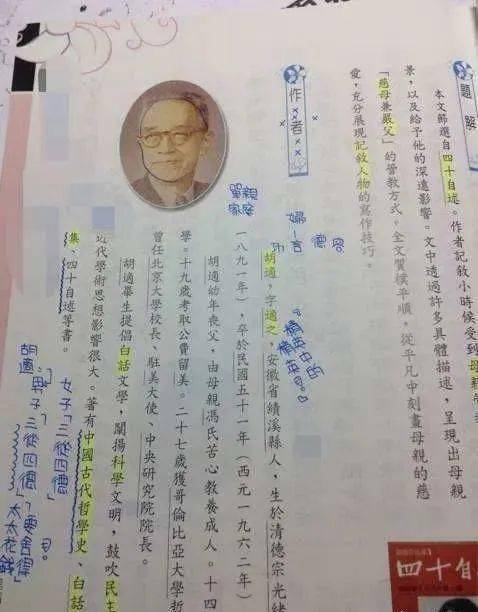 題解
本文節選自四十自述。作者記敘小時候受到母親
景，以及給予他的深遠影響。文中透過許多具體描述，呈現出母親
「慈母兼嚴父」的管教方式。全文質樸平順，從平凡中刻畫母親的慈
愛，充分展現記敘人物的寫作技巧。
作者
單親
家庭
婦
言 德 容
功
精英中的
精英。
胡適，字適之，安徽省績溪縣人，生於清德宗光緒
一八九一年），卒於民國五十一年（西元一九六二年）
胡適幼年喪父，由母親馮氏苦心教養成人。十四
學。十九歲考取公費留美。二十七歲獲哥倫比亞大學哲
曾任北京大學校長、駐美大使、中央研究院院長。
胡適畢生提倡白話文學，闡揚科學文明，鼓吹民主
近代學術思想影響很大。著有中國古代哲學史、白話
集、四十自述等書。
女子「三從四德」
胡適：男子「三從四德」
要捨得
太太花錢
四十自